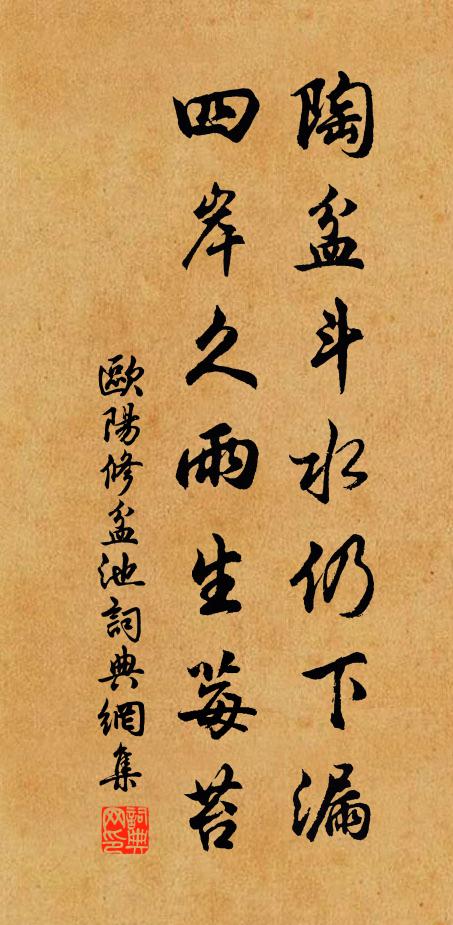 陶盆斗水仍下漏
四岸久雨生莓苔
歐陽修盆池詞典網集
詞典网印